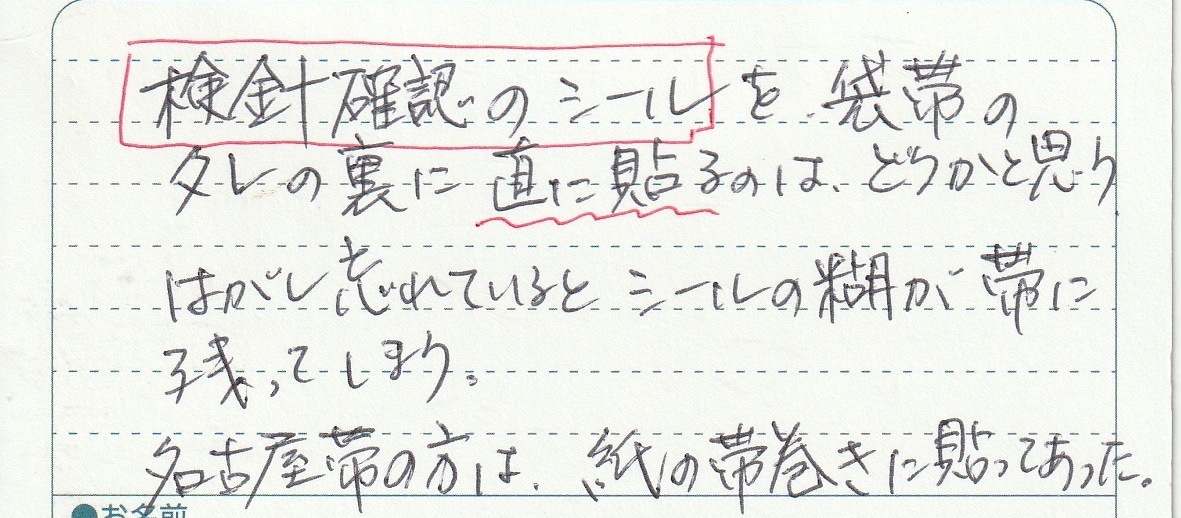 検針確認のシールを袋帯の
タレの裏に直に貼るのは、どうかと思う
はがし忘れているとシールの糊が帯に
残ってしまう。
名古屋帯の方は、紙の帯巻きに貼ってあった。
●お名前